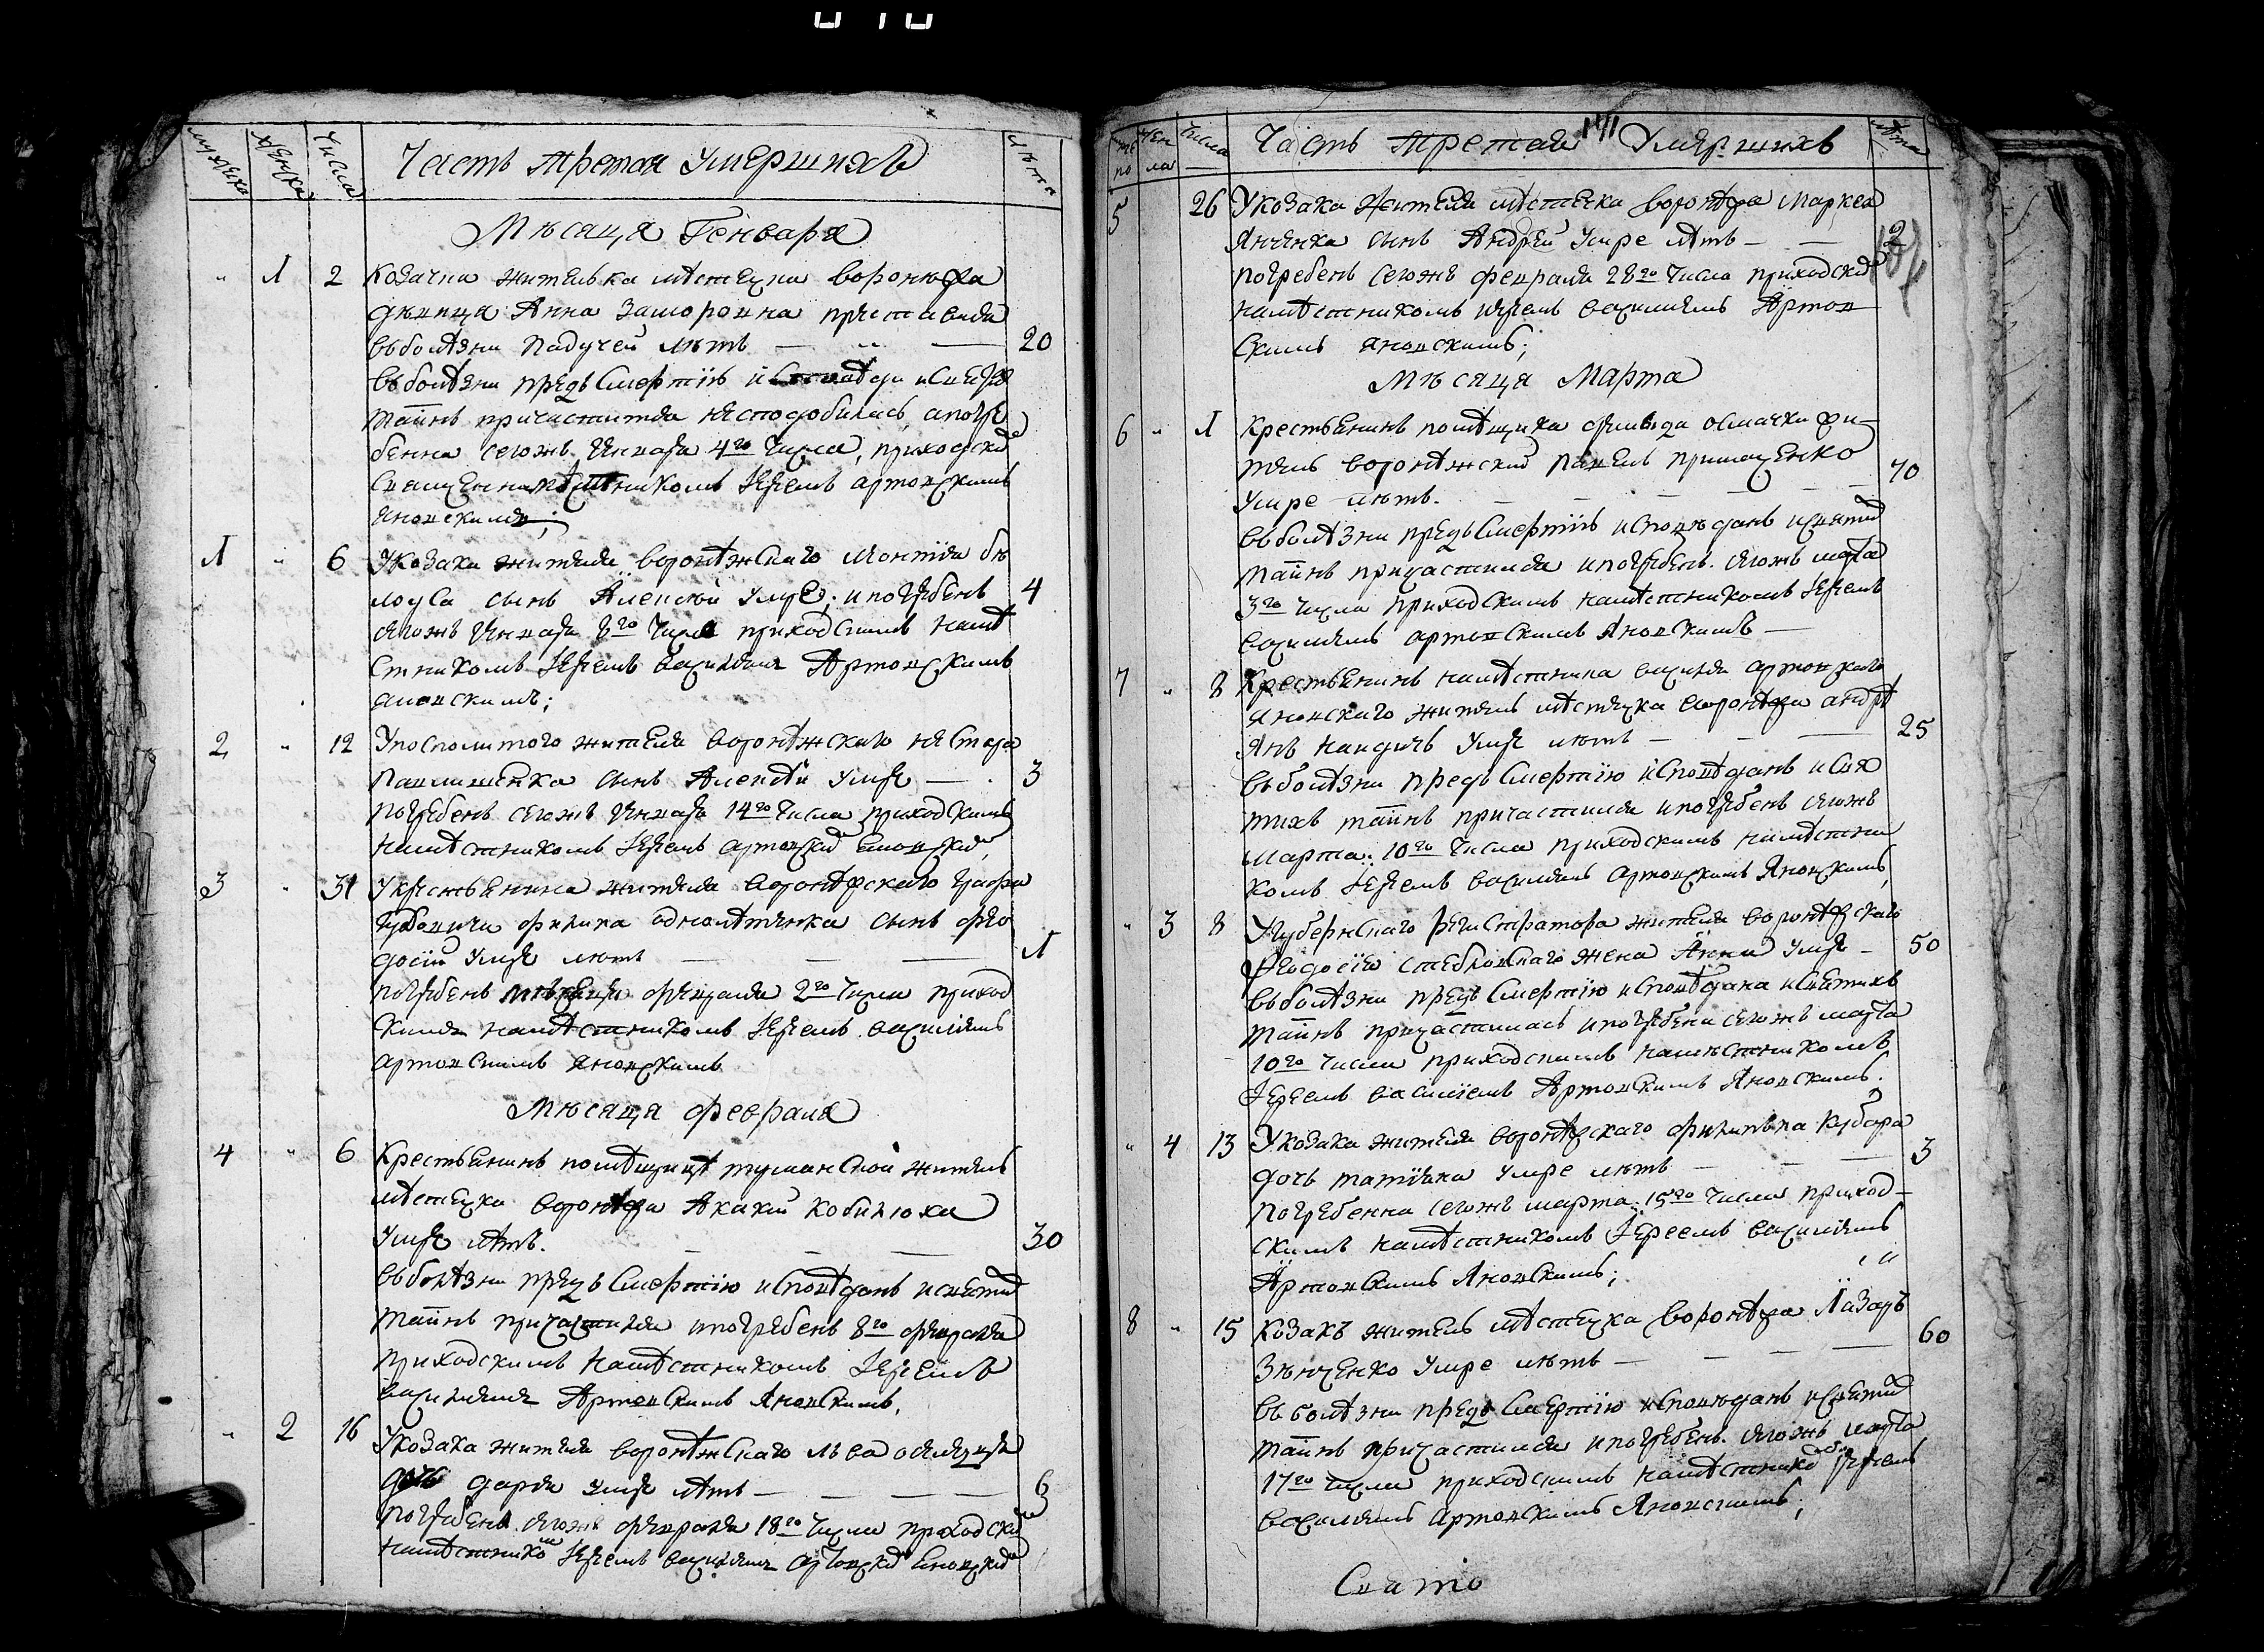 мужеска
женска
Числа
Часть третая Умершихъ
лѣта
Мѣсяца Генваря
" 1 2 Козачка жителька мѣстечка Воронѣжа
дѣвица Анна Заморовна преставися
въ болѣзни Падучей лѣтъ — " — 20
въ болѣзни предъ Смертію
таинъ причаститися несподобилась, а погре
бенна сегожъ Генваря 4го Числа, приходски
Іереемъ Артовскимъ
Яновскимъ;
1 " 6 Укозака жителя воронѣжскаго Леонтія бѣ
лоуса сынъ Алексѣй умре; и погребенъ 4
сегожъ Генваря 8го Числа приходскимъ намѣ
стникомъ Іереемъ Василіемъ Артовскимъ
Яновскимъ;
2 " 12 Упосполитого жителя воронѣжскаго Нестора
Павлишенка сынъ Алексѣй умре — 3
Погребенъ сегожъ Генваря 14го Числа приходскимъ
намѣстникомъ Іереемъ Артовски Яновски
3 " 31 Укрестьянина жителя воронѣжскаго графа
Филипа сынъ Фео
досій Умре лѣтъ — — 1
погребенъ мѣсяца февраля 2го Числа приход
скимъ намѣстникомъ Іереемъ Василіемъ
Артовскимъ Яновскимъ
Мѣсяца февраля
4 " 6 Крестьянинъ помѣщицѣ туманской житель
мѣстечка воронѣжа Акакий Кобилюха
Умре лѣтъ. — — — 30
въ болѣзни предъ Смертію исповѣданъ и святи
таинъ причастился и погребенъ 8го февраля
приходскимъ намѣстникомъ Іереемъ
Василіемъ Артовскимъ Яновскимъ.
" 2 16 Укозака жителя воронѣжскаго Льва
дочь Дарія умре лѣтъ — — 6
погребена сегожъ февраля 18го Числа приходски
намѣстнико Іереемъ Василіемъ Артовски Яновски
Числа
Часть третая Умершихъ
лѣта
5 26 Укозака жителя мѣстечка воронѣжа Маркела
Янченка сынъ Андрей Умре лѣтъ — — 2
погребенъ сегожъ февраля 28го Числа приходски
намѣстникомъ Іереемъ Василіемъ Артов
скимъ Яновскимъ;
Мѣсяца Марта
6 " 1 Крестьянинъ помѣщика Осмачки жи
тель воронѣжский Павелъ
Умре лѣтъ. — — — 70
въ болѣзни предъ Смертію исповѣданъ и святи
таинъ причастился и погребенъ. сегожъ марта
3го Числа приходскимъ намѣстникомъ Іереемъ
Василіемъ Артовскимъ Яновскимъ —
7 " 8 Крестьянинъ намѣстника Василія Артовскаго
Яновскаго житель мѣстечка воронѣжа Андрѣ
Умре лѣтъ — — 25
въ болѣзни предъ Смертію исповѣданъ и свя
тихъ таинъ причастился и погребенъ сегожъ
Марта: 10го Числа приходскимъ намѣстни
комъ Іереемъ Василіемъ Артовскимъ Яновскимъ,
" 3 8 Угубернскаго регистратора жителя воронѣжскаго
Феодосія жена Анна Умре — 50
въ болѣзни предъ Смертію исповѣдана и святихъ
таинъ причастилась и погребена сегожъ марта
10го Числа приходскимъ намѣстникомъ
Іереемъ Василіемъ Артовскимъ Яновскимъ.
" 4 13 Укозака жителя воронѣжскаго Филипа
дочь Татіяна Умре лѣтъ — — 3
погребенна сегожъ марта. 15го Числа приход-
скимъ намѣстникомъ Іереемъ Василіемъ
Артовскимъ Яновскимъ;
8 " 15 Козакъ житель мѣстечка воронѣжа Лазарь
Зѣнченко Умре лѣтъ — — — 60
въ болѣзни предъ Смертію исповѣданъ и святи
таинъ причастился и погребенъ. сегожъ марта
17го Числа приходскимъ намѣстнико Іереемъ
Василіемъ Артовскимъ Яновскимъ;